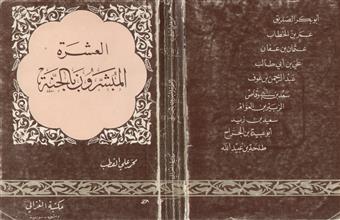 العشرة
المبشرون بالجنة
محمد علي القطب
مكتبة الغزالي
أبو بكر الصديق
عمر بن الخطاب
عثمان بن عفان
علي بن أبي طالب
عبد الرحمن بن عوف
سعد بن أبي وقاص
الزبير بن العوام
سعيد بن زيد
أبو عبيدة بن الجراح
طلحة بن عبد الله